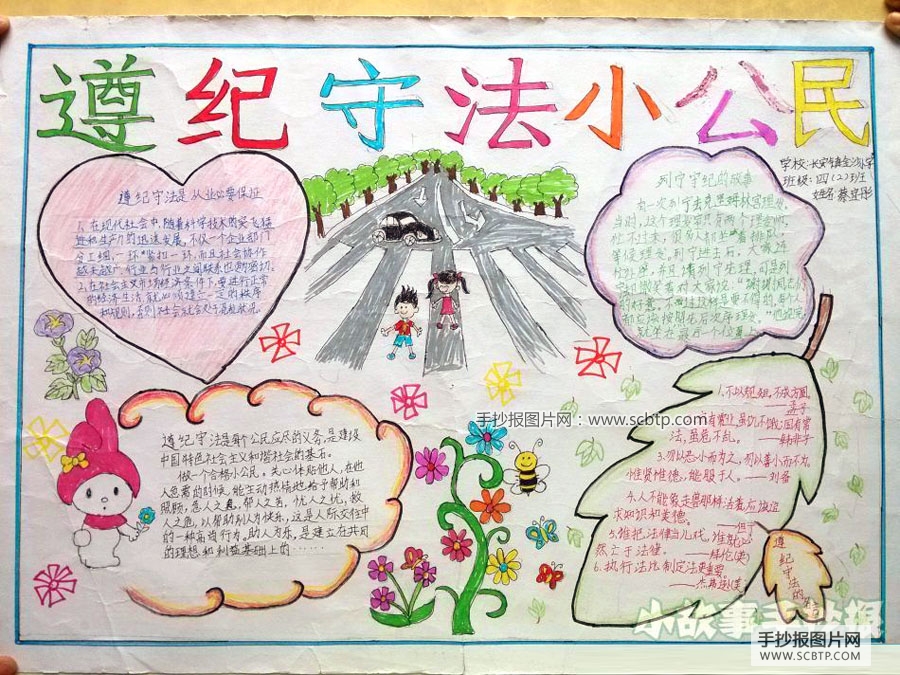 遵纪守法小公民
学校:长安镇金沙小学
班级:四(2)班
姓名:蔡宜彤
遵纪守法是从业必要保证
1、在现代社会中,随着科学技术的突飞猛
进和生产力的迅速发展,不仅一个企业部门
分工细,一环紧扣一环,而且社会协作
越来越广,行业与行业之间联系也越密切。
2、在社会主义市场经济条件下,要进行正常
的经济生活,就必须建立一定的秩序
和规则,否则社会就会处于混乱状况。
列宁守纪的故事
有一次列宁去克里姆林宫理发。
当时,这个理发室只有两个理发师,
忙不过来,很多人都坐着排队,
等候理发。列宁进去后,大家连
忙让座,并且请列宁先理,可是列
宁却微笑着对大家说:"谢谢同志们
的好意,不过这样是要不得的,每个人
都应该按照先后次序理发。"他说完,
就坐在最后一个位置上。
遵纪守法是每个公民应尽的义务,是建设
中国特色社会主义和谐社会的基石。
做一个合格小公民。关心体贴他人,在他
人危害的时候,能主动热情地给予帮助和
照顾,急人之急,帮人之苦,忧人之忧,救
人之危,以帮助别人为快乐,这是人际交往中
的一种高尚行为。助人为乐,是建立在共同
的理想和利益基础上的……
1.不以规矩,不成方圆。
——孟子
国有常
法,虽危不乱。
——韩非子
3.勿以恶小而为之,勿以善小而不为,
惟贤惟德,能服于人。——刘备
4.人不能象走兽那样活着,应该追
求知识和美德。
——但丁
5.谁把法律当儿戏,谁就必
然亡于法律。——拜伦(英)
6.执行法比制定法更重要。
——杰弗逊(美)
遵纪守法的
手抄报图片网:www.scbtp.com
小故事手抄报
手抄报图片网
WWW.SCBTP.COM